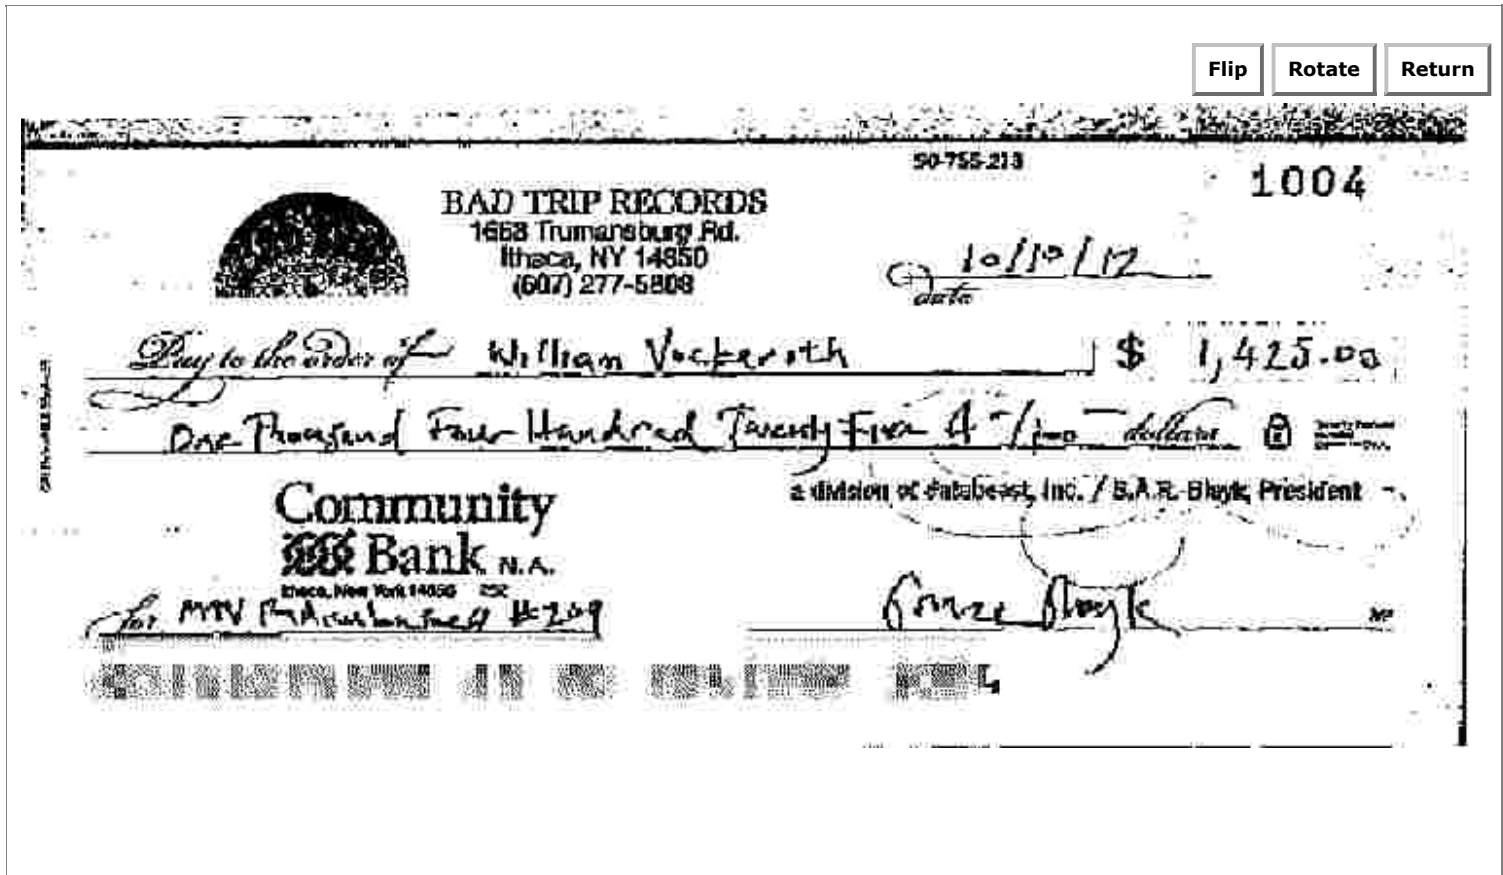 Flip Rotate Return
90-755-213
1004
BAD TRIP RECORDS
1668 Trumansburg Rd.
Ithaca, NY 14850
(607) 277-5808
date 10/10/12
Pay to the order of William Vockeroth $ 1,425.00
One Thousand Four Hundred Twenty Five & -/100 dollars
a division of databeast, Inc. / B.A.R. Blayk, President
Community
Bank N.A.
Ithaca, New York 14850 252
for #209
Blayk MP